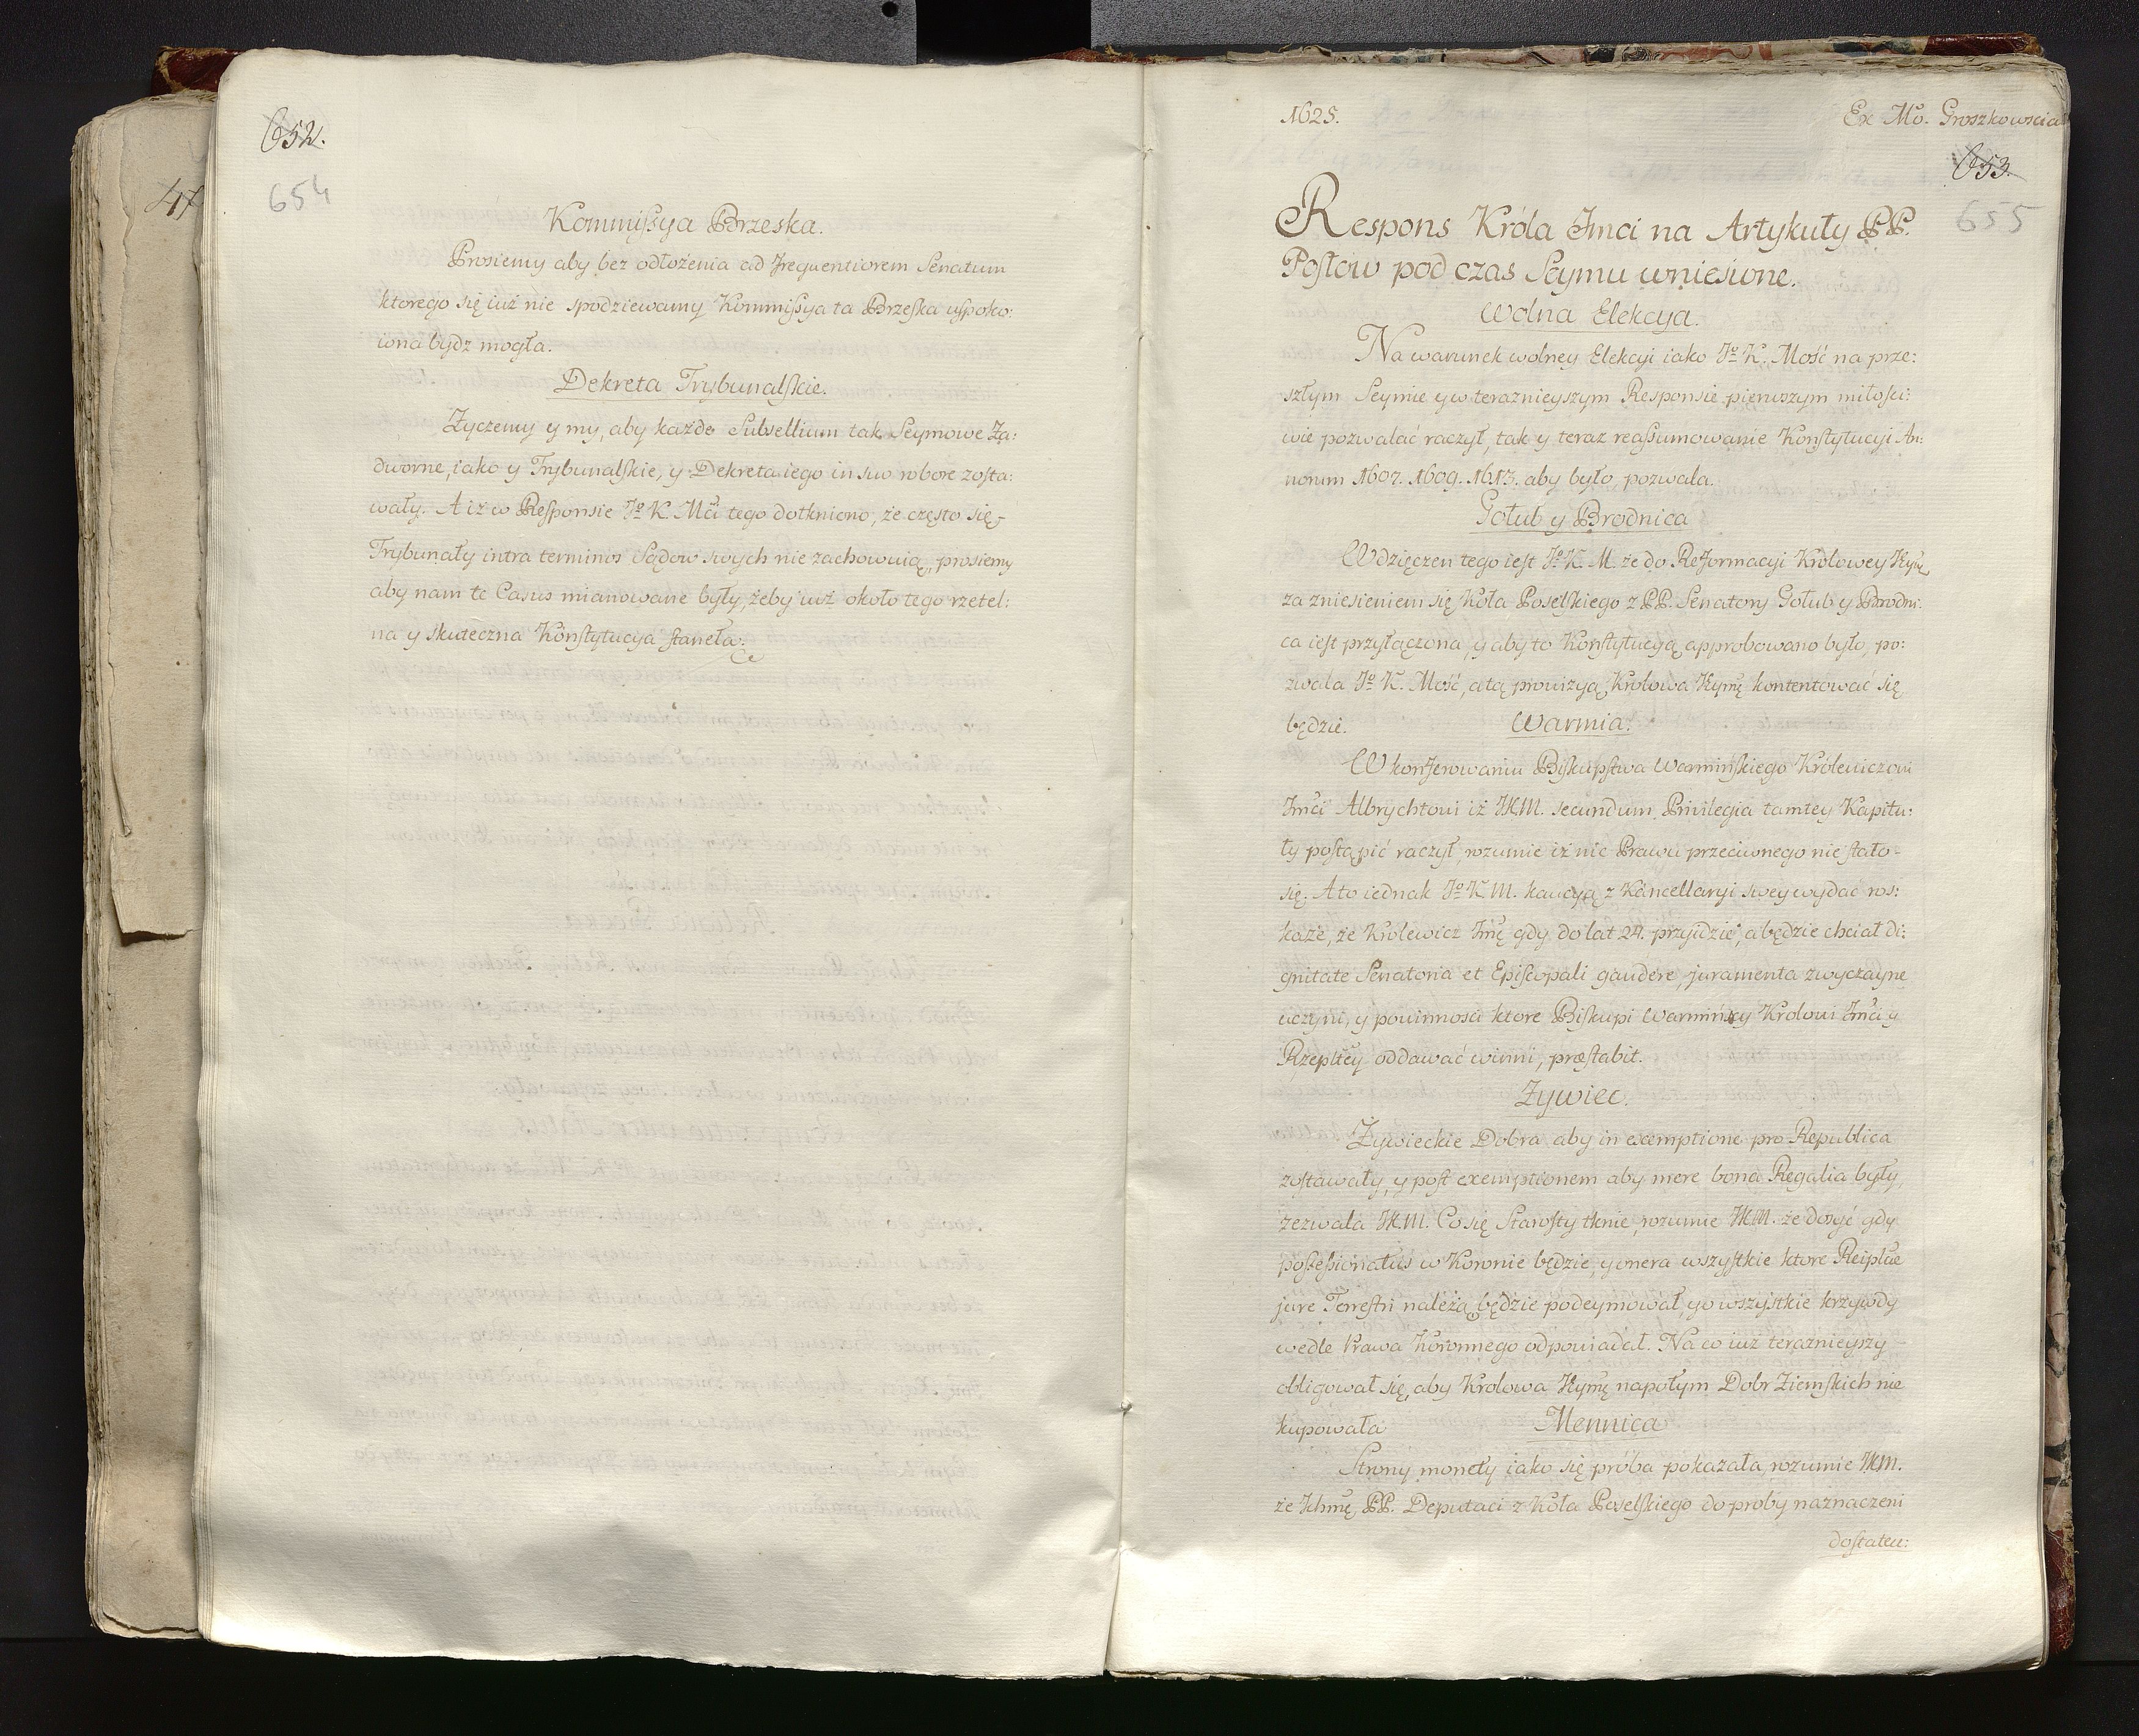 652.
654
Kommissya Brzeska.
Prosiemy aby bez odłożenia ad frequentiorem Senatum
ktorego się iuż nie spodziewamy Kommissya ta Brzeska uspoko:
iona bydz mogła.
Dekreta Trybunalskie.
Zyczemy y my, aby każde Subsellium tak Seymowe Za:
dworne, iako y Trybunalskie, y Dekreta iego in suo robore zosta:
wały. A iż w Responsie Jº K. Mći tego dotkniono, że często się
Trybunały intra terminos Sądow swych nie zachowuią, prosiemy
aby nam te Casus mianowane były, żeby iuż około tego rzetel:
na y skuteczna Konstytucya stanęła.
1625.
Ex Mo. Groszkowscia
653.
655
Respons Króla Jmci na Artykuły PP.
Posłow pod czas Seymu wniesione.
Wolna Elekcya.
Na warunek wolney Elekcyi iako Jº K. Mość na prze:
szłym Seymie y w teraznieyszym Responsie pierwszym miłości:
wie pozwalać raczył, tak y teraz reassumowanie Konstytucyi An:
norum 1607. 1609. 1613. aby było, pozwala.
Gołub y Brodnica
Wdzięczen tego iest Jº K. M. że do Reformacyi Krolowey Jeymę
za zniesieniem się Koła Poselskiego z PP. Senatory Gołub y Brodni.
ca iest przyłączona, y aby to Konstytucyą approbowano było, po:
zwala Jº K. Mość, a tą prowizyą Krolowa Jeymę kontentować się
będzie.
Warmia.
W konferowaniu Biskupstwa Warmińskiego Króleviczowi
Jmći Albrychtowi iż JKM. secundum Privilegia tamtey Kapitu:
ły postąpić raczył, rozumie iż nic Prawu przeciwnego nie stało
się. A to iednak Jº K. M. kaucyą z Kancellaryi swey wydać ros:
każe, że Krolewicz Jmć gdy do lat 24. przyidzie, a będzie chciał di:
gnitate Senatoria et Episcopali gaudere, juramenta zwyczayne
uczyni, y powinności ktore Biskupi Warmińscy Krolowi Jmći y
Rzepltey oddawać winni, præstabit.
Zywiec.
Żywieckie Dobra aby in exemptione pro Republica
zostawały, y post exemptionem aby mere bona Regalia były,
zezwala JKM. Co się Starosty tknie, rozumie JKM. że dosyć gdy
possessionatus w Koronie będzie, y onera wszystkie ktore Reiplcæ
jure Terrestri należą będzie podeymował, y o wszystkie krzywdy
wedle Prawa Koronnego odpowiadał. Na co iuż teraznieyszy
obligował się, aby Krolowa Jeymę napotym Dobr Ziemskich nie
kupowała
Mennica
Strony monety iako się próba pokazała, rozumie JKM.
że Ichmę PP. Deputaci z Koła Poselskiego do proby naznaczeni
dostatecz: